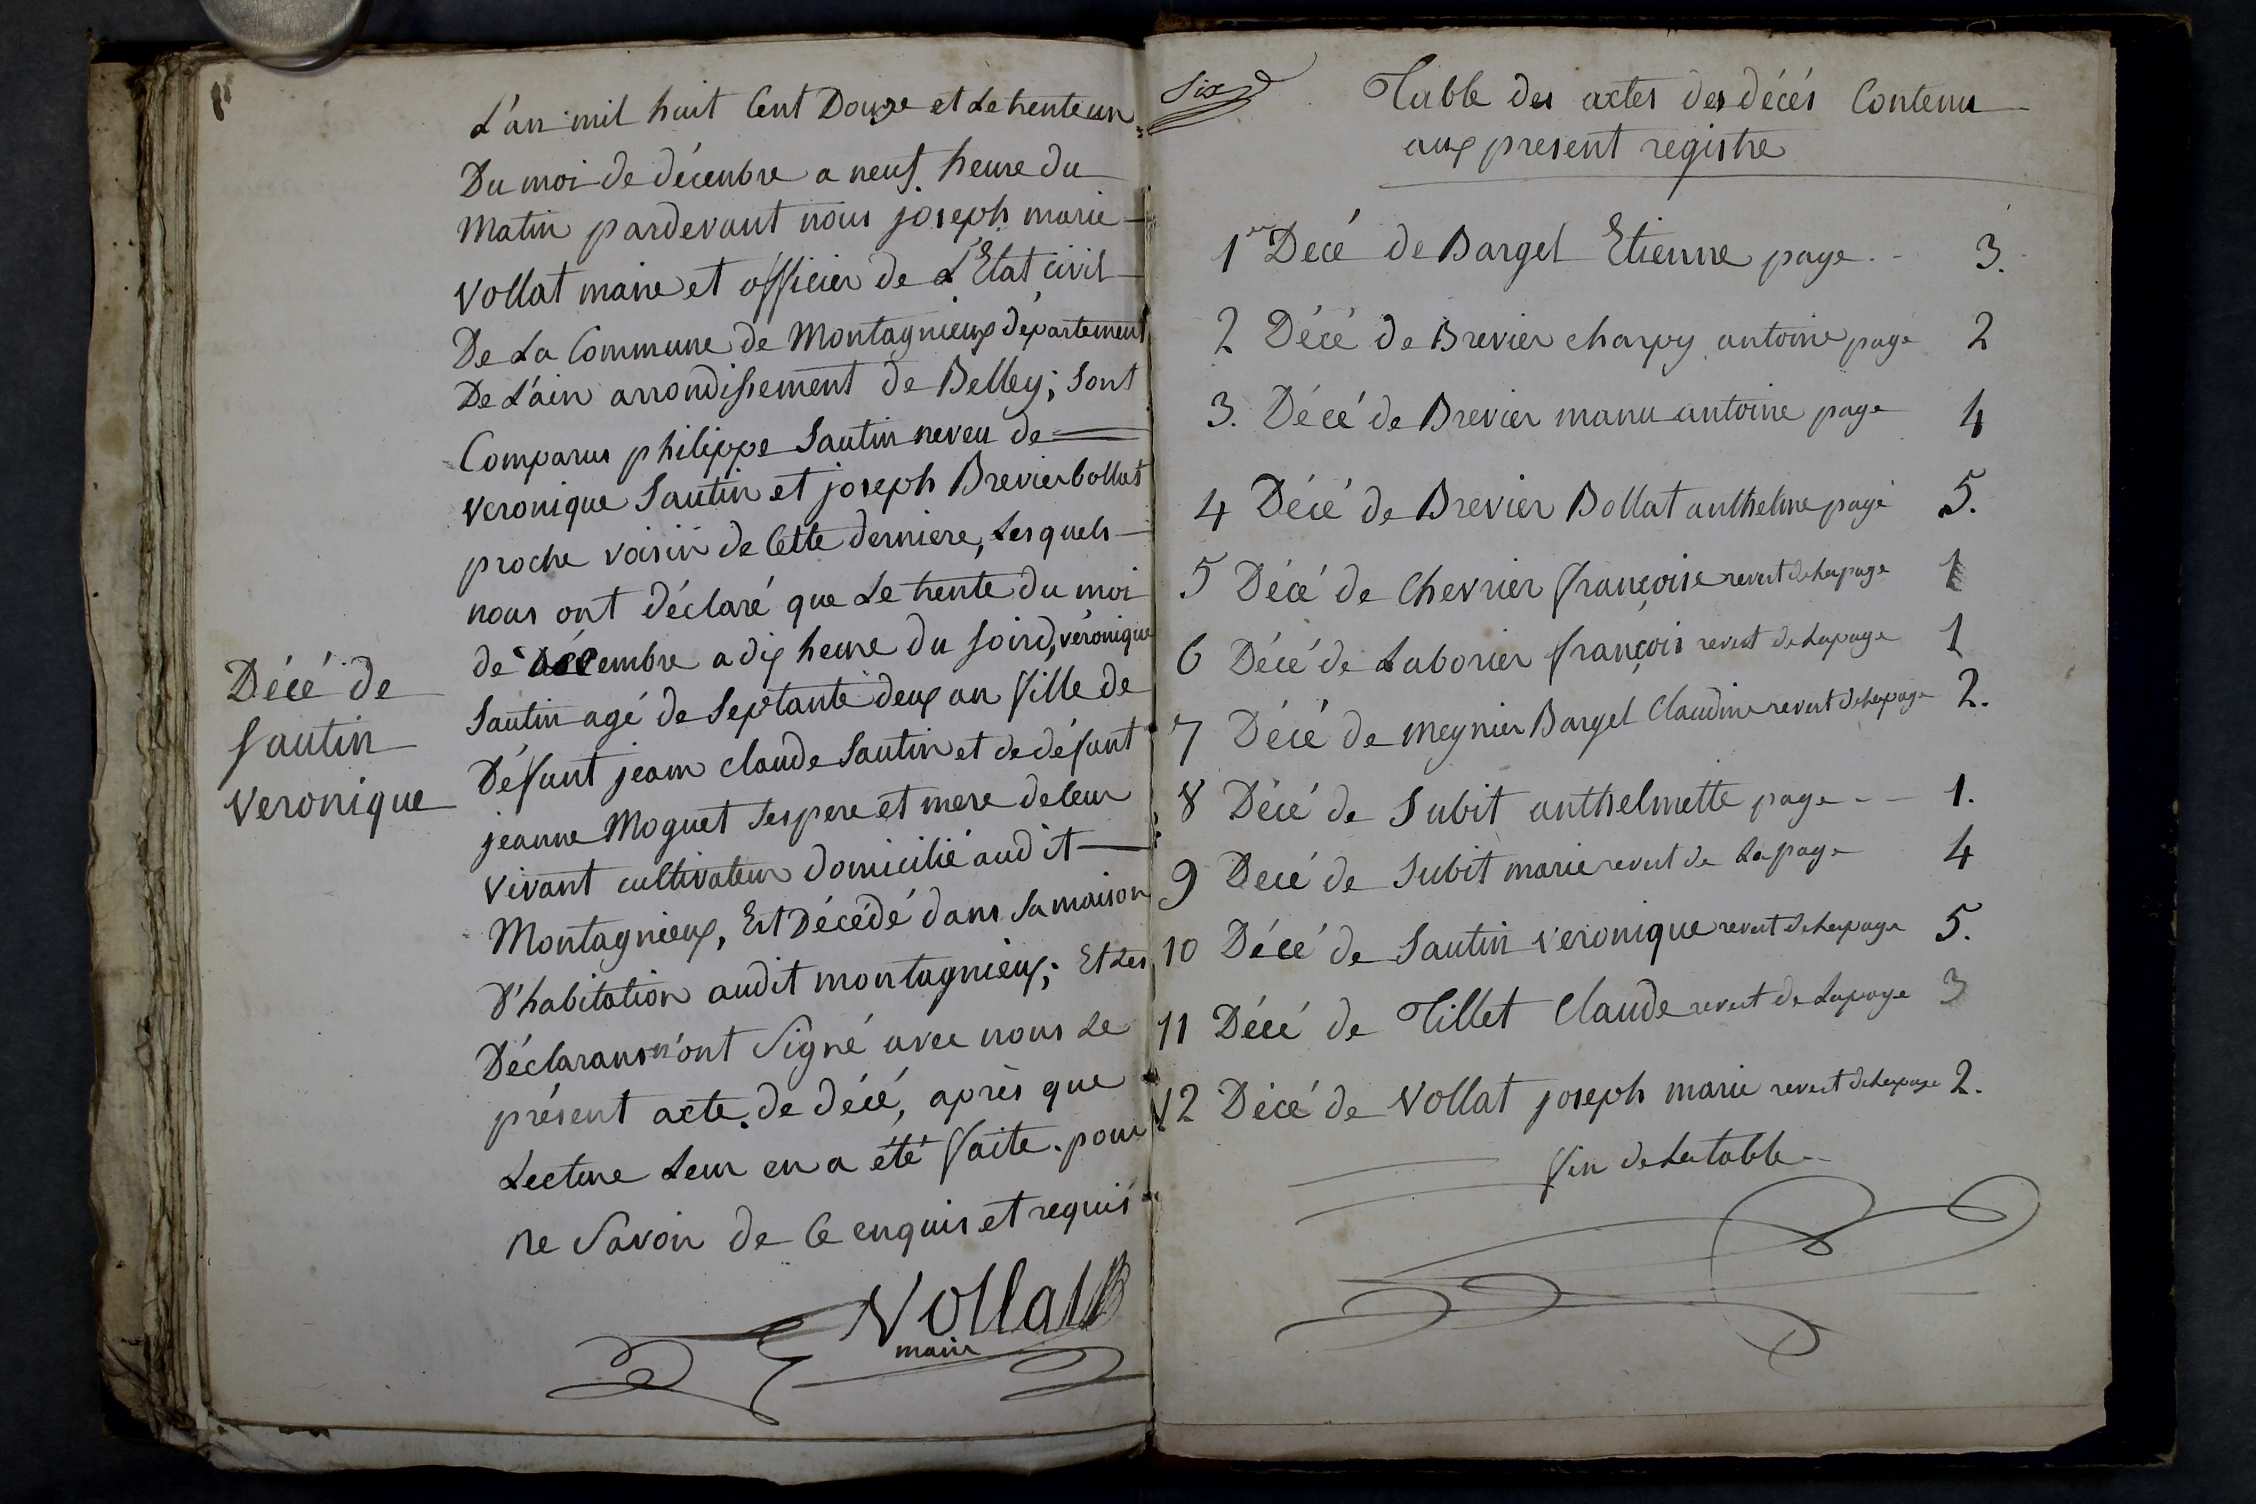 L'an mil huit Cent Douze et Le trente un
Du moi de décembre a neuf heure du
Matin pardevant nous joseph marie
Vollat maire et officier de L'Etat civil
De La Commune de Montagnieux département
De L'ain arrondissement de Belley; sont
Comparus philippe Sautin neveu de
Veronique Sautin et joseph Brevier bollat
proche voisin de Cette derniere, Lesquels
nous ont déclaré que Le trente du moi
de décembre a dix heure du soird, véronique
Sautin agé de Septante deux an fille de
Défunt jean claude Sautin et de défunt
jeanne Moguet Ses pere et mere de leur
Vivant cultivateur domicilié audit
Montagnieux, Est Décédé dans Sa maison
D'habitation audit montagnieux; Et Les
Déclarans n'ont Signé avec nous Le
présent acte de décé, après que
Lecture Leur en a été faite. pour
ne Savoir de Ce enquis et requis
Vollat
maire
Décé de
Sautin
Veronique
Six
Table des actes des décés Contenu
aux present registre
1er Decé de Bargel Etienne page 3.
2 Décé de Brevier charpy antoine page 2
3. Décé de Brevier manu antoine page 4
4 Décé de Brevier Bollat anthelme page 5.
5 Décé de Chevrier françoise revert de La page 1
6 Décé de Laborier françois revert de La page 1
7 Décé de meynier Bargel Claudine revert de La page 2.
8 Décé de Subit anthelmette page 1.
9 Decé de Subit marie revert de La page 4
10 Décé de Sautin veronique revert de La page 5.
11 Décé de Tillet Claude revert de La page 3
12 Décé de Vollat joseph marie revert de La page 2.
fin de La table